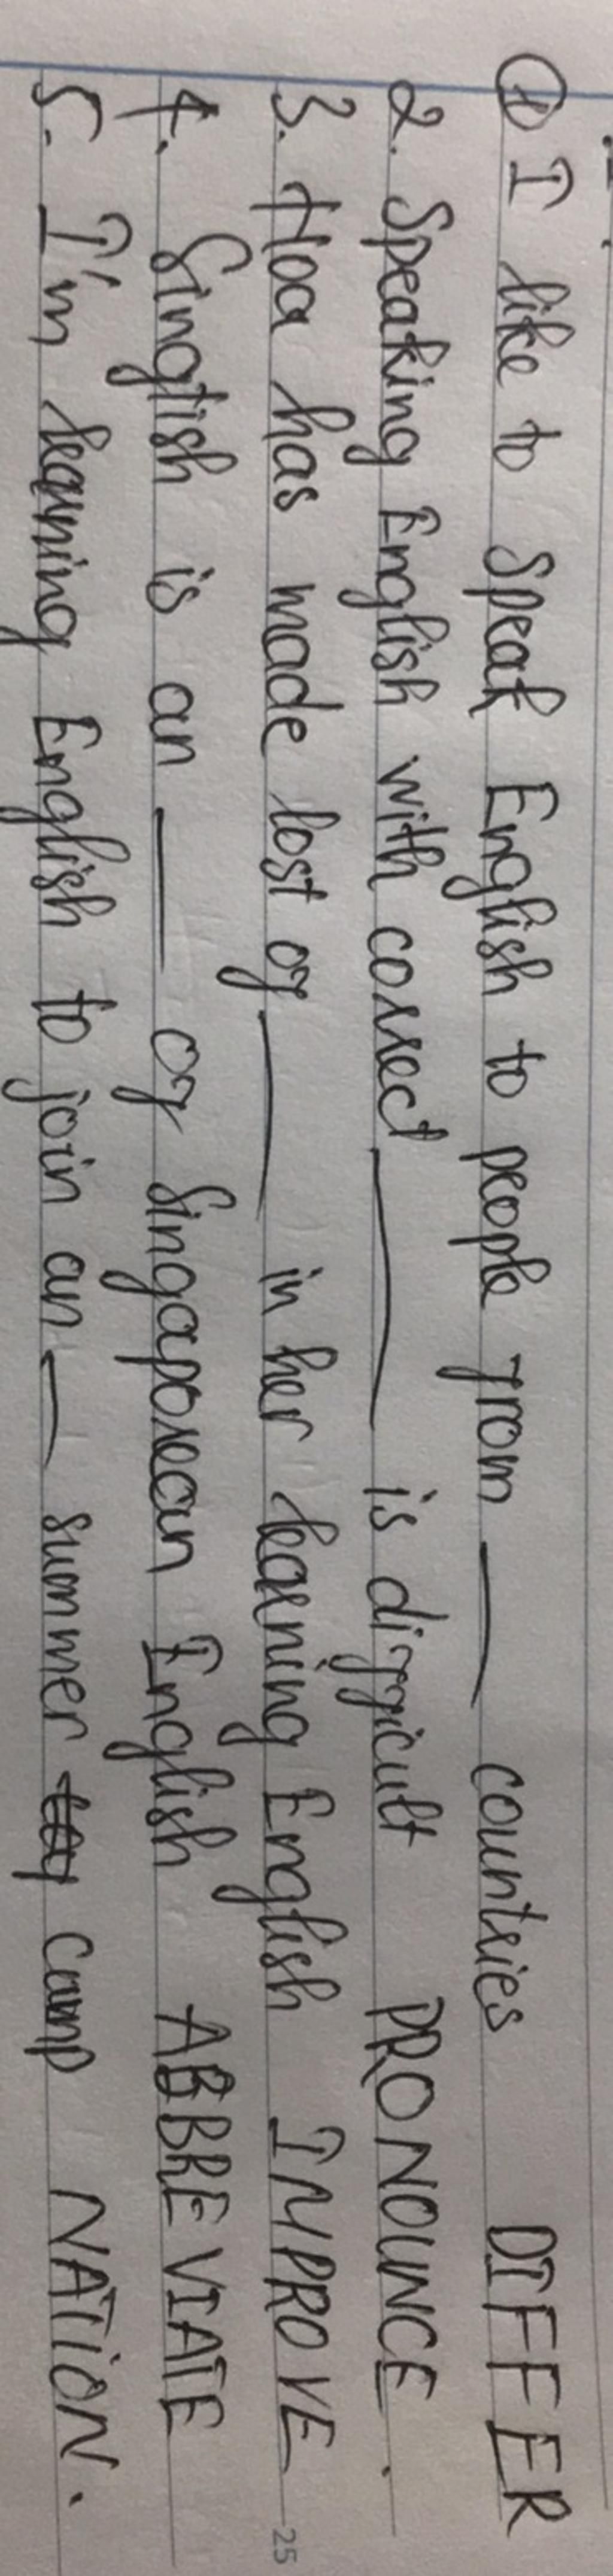 ① I like to speak English to people from ___ countries DIFFER
2. Speaking English with correct ___ is difficult PRONOUNCE.
3. Hoa has made lost of ___ in her learning English IMPROVE
4. Singlish is an ___ of Singaporean English ABBREVIATE
5. I'm learning English to join an ___ summer camp NATION.
25